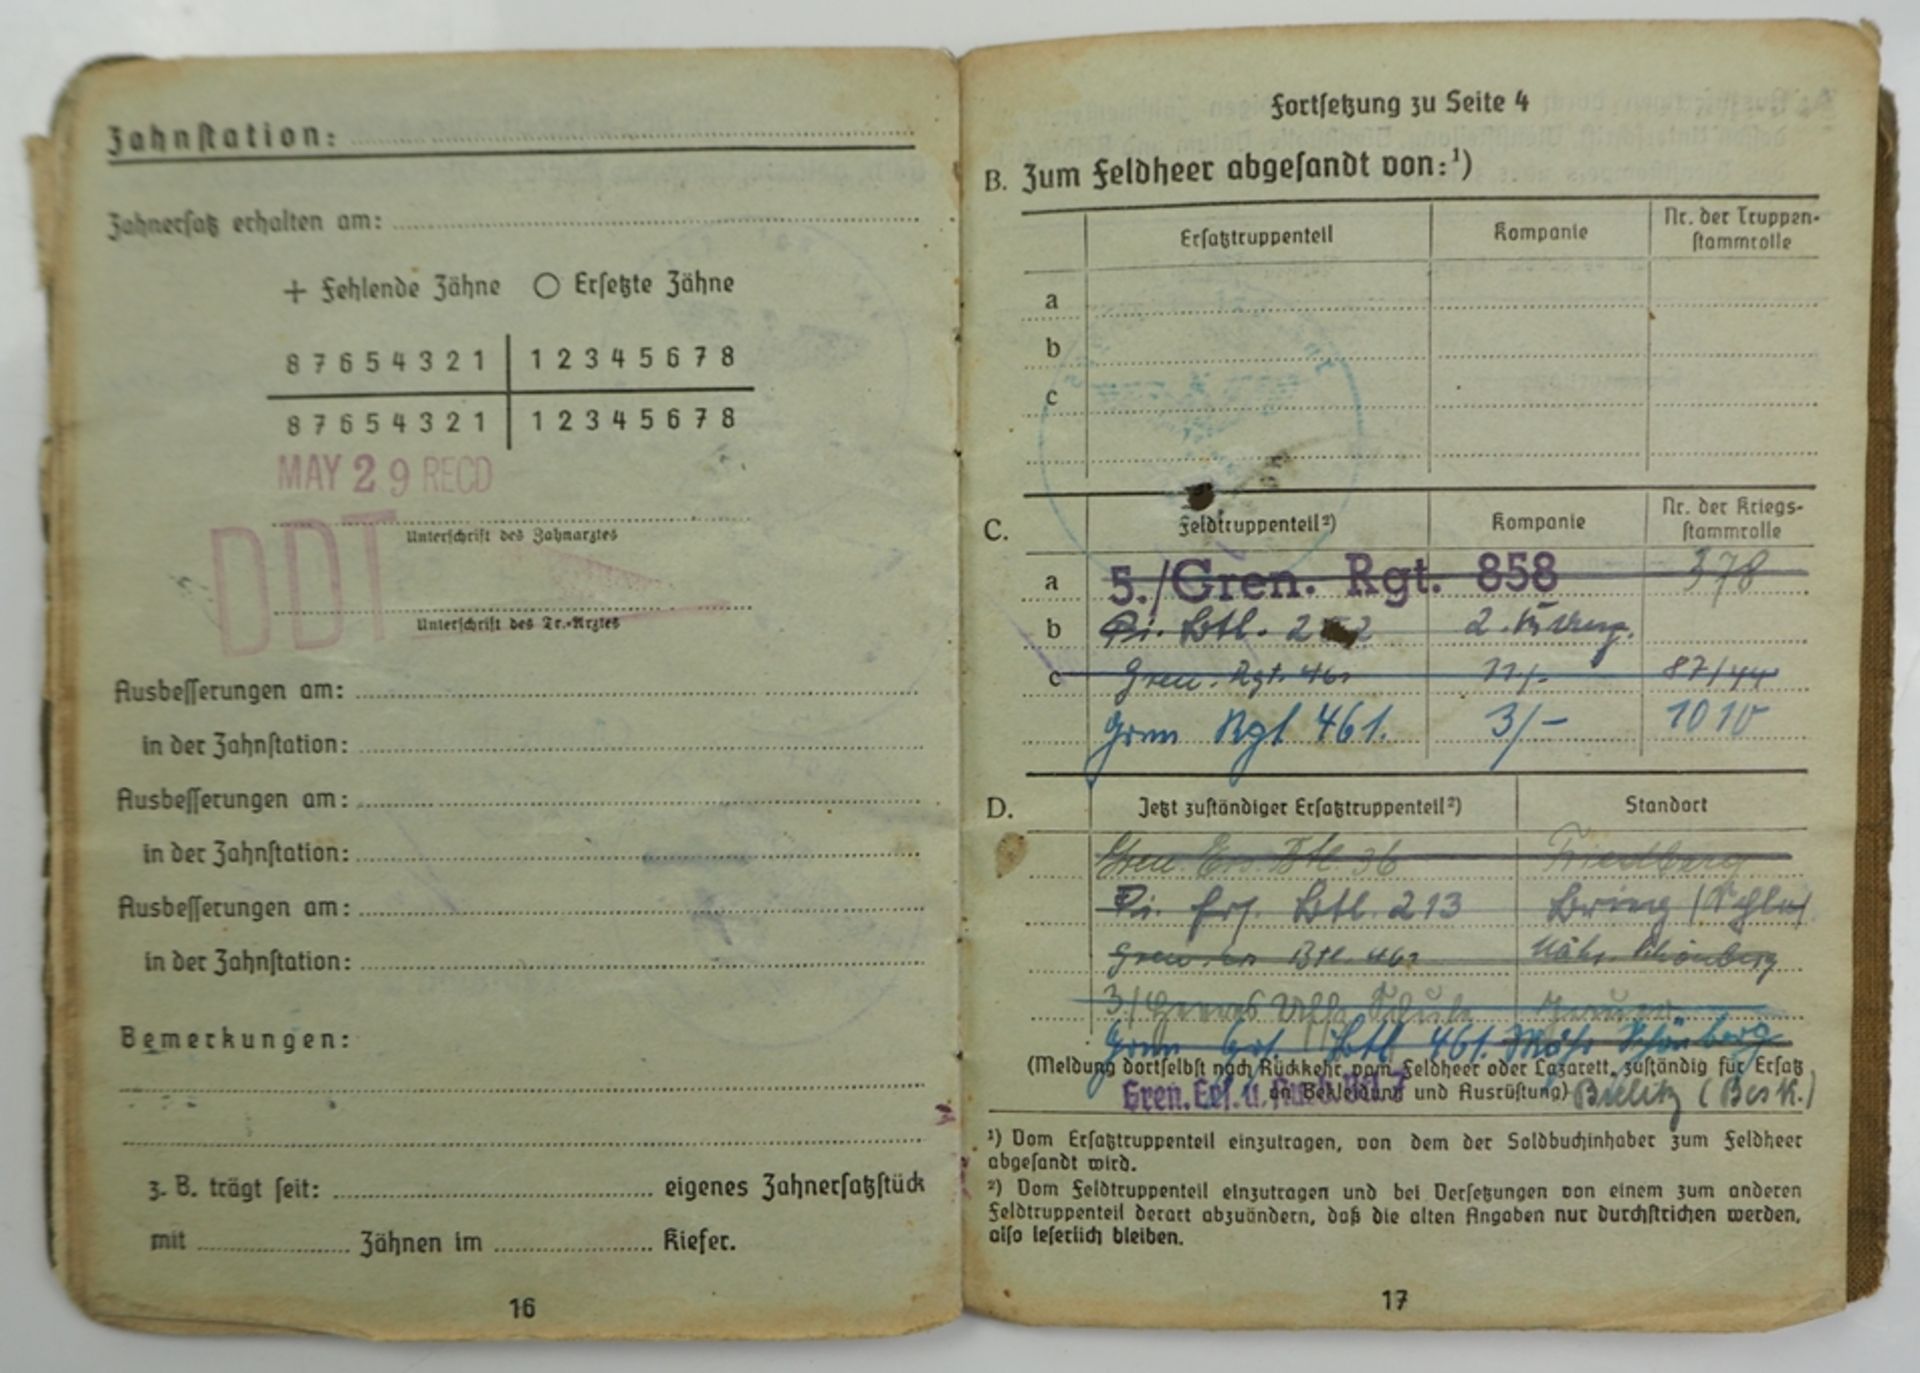 Zahnstation:
Zahnersatz erhalten am:
+ Fehlende Zähne ○ Ersetzte Zähne
8 7 6 5 4 3 2 1 1 2 3 4 5 6 7 8
8 7 6 5 4 3 2 1 1 2 3 4 5 6 7 8
MAY 29 RECD
DDT
Unterschrift des Zahnarztes
Unterschrift des Tr.-Arztes
Ausbesserungen am:
in der Zahnstation:
Ausbesserungen am:
in der Zahnstation:
Ausbesserungen am:
in der Zahnstation:
Bemerkungen:
z. B. trägt seit: eigenes Zahnersatzstück
mit Zähnen im Kiefer.
16
Fortsetzung zu Seite 4
B. Zum Feldheer abgesandt von:¹)
Ersatztruppenteil Kompanie Nr. der Truppen-
stammrolle
a
b
c
C. Feldtruppenteil²) Kompanie Nr. der Kriegs-
stammrolle
a 5./Gren. Rgt. 858 378
b Pi. Btl. 2 2 2.
c Gren. Rgt. 461 11/- 87/44
Gren Rgt 461. 3/- 1010
D. Jetzt zuständiger Ersatztruppenteil²) Standort
Gren. Ers. Btl. 36 Friedberg
Pi. Ers. Btl. 213
Gren. Ers Btl. 461 Mähr. Schönberg
3./ Schule
Gren Ers Btl 461. Mähr Schönberg
(Meldung dortselbst nach Rückkehr vom Feldheer oder Lazarett, zuständig für Ersatz
an Bekleidung und Ausrüstung)
Gren. Ers. u. Bielitz (Besk.)
¹) Vom Ersatztruppenteil einzutragen, von dem der Soldbuchinhaber zum Feldheer
abgesandt wird.
²) Vom Feldtruppenteil einzutragen und bei Versetzungen von einem zum anderen
Feldtruppenteil derart abzuändern, daß die alten Angaben nur durchstrichen werden,
also leserlich bleiben.
17